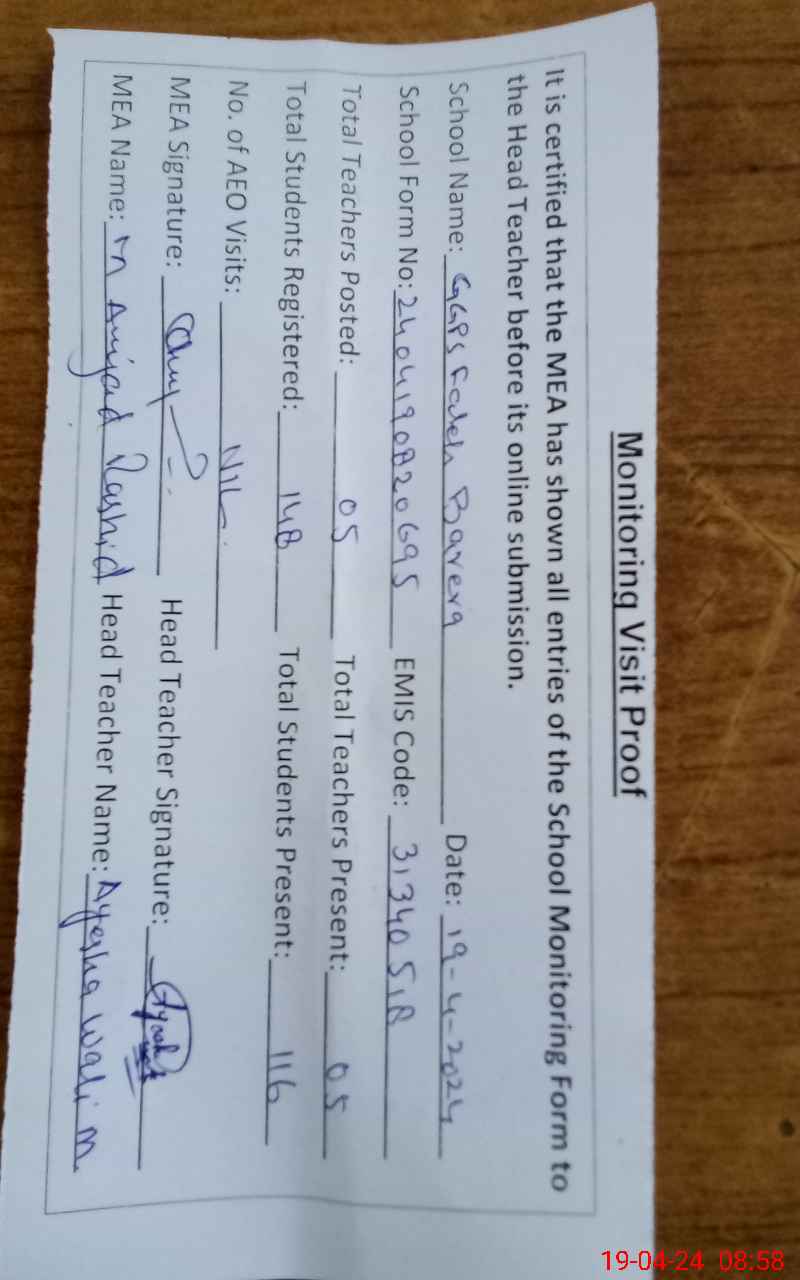 Monitoring Visit Proof
It is certified that the MEA has shown all entries of the School Monitoring Form to
the Head Teacher before its online submission.
School Name: GGPS Fateh Barera Date: 19-4-2024
School Form No: 2404190820695 EMIS Code: 31340518
Total Teachers Posted: 05 Total Teachers Present: 05
Total Students Registered: 148 Total Students Present: 116
No. of AEO Visits: NIL
MEA Signature: Head Teacher Signature:
MEA Name: M Amjad Rashid Head Teacher Name: Ayesha Wali M
19-04-24 08:58